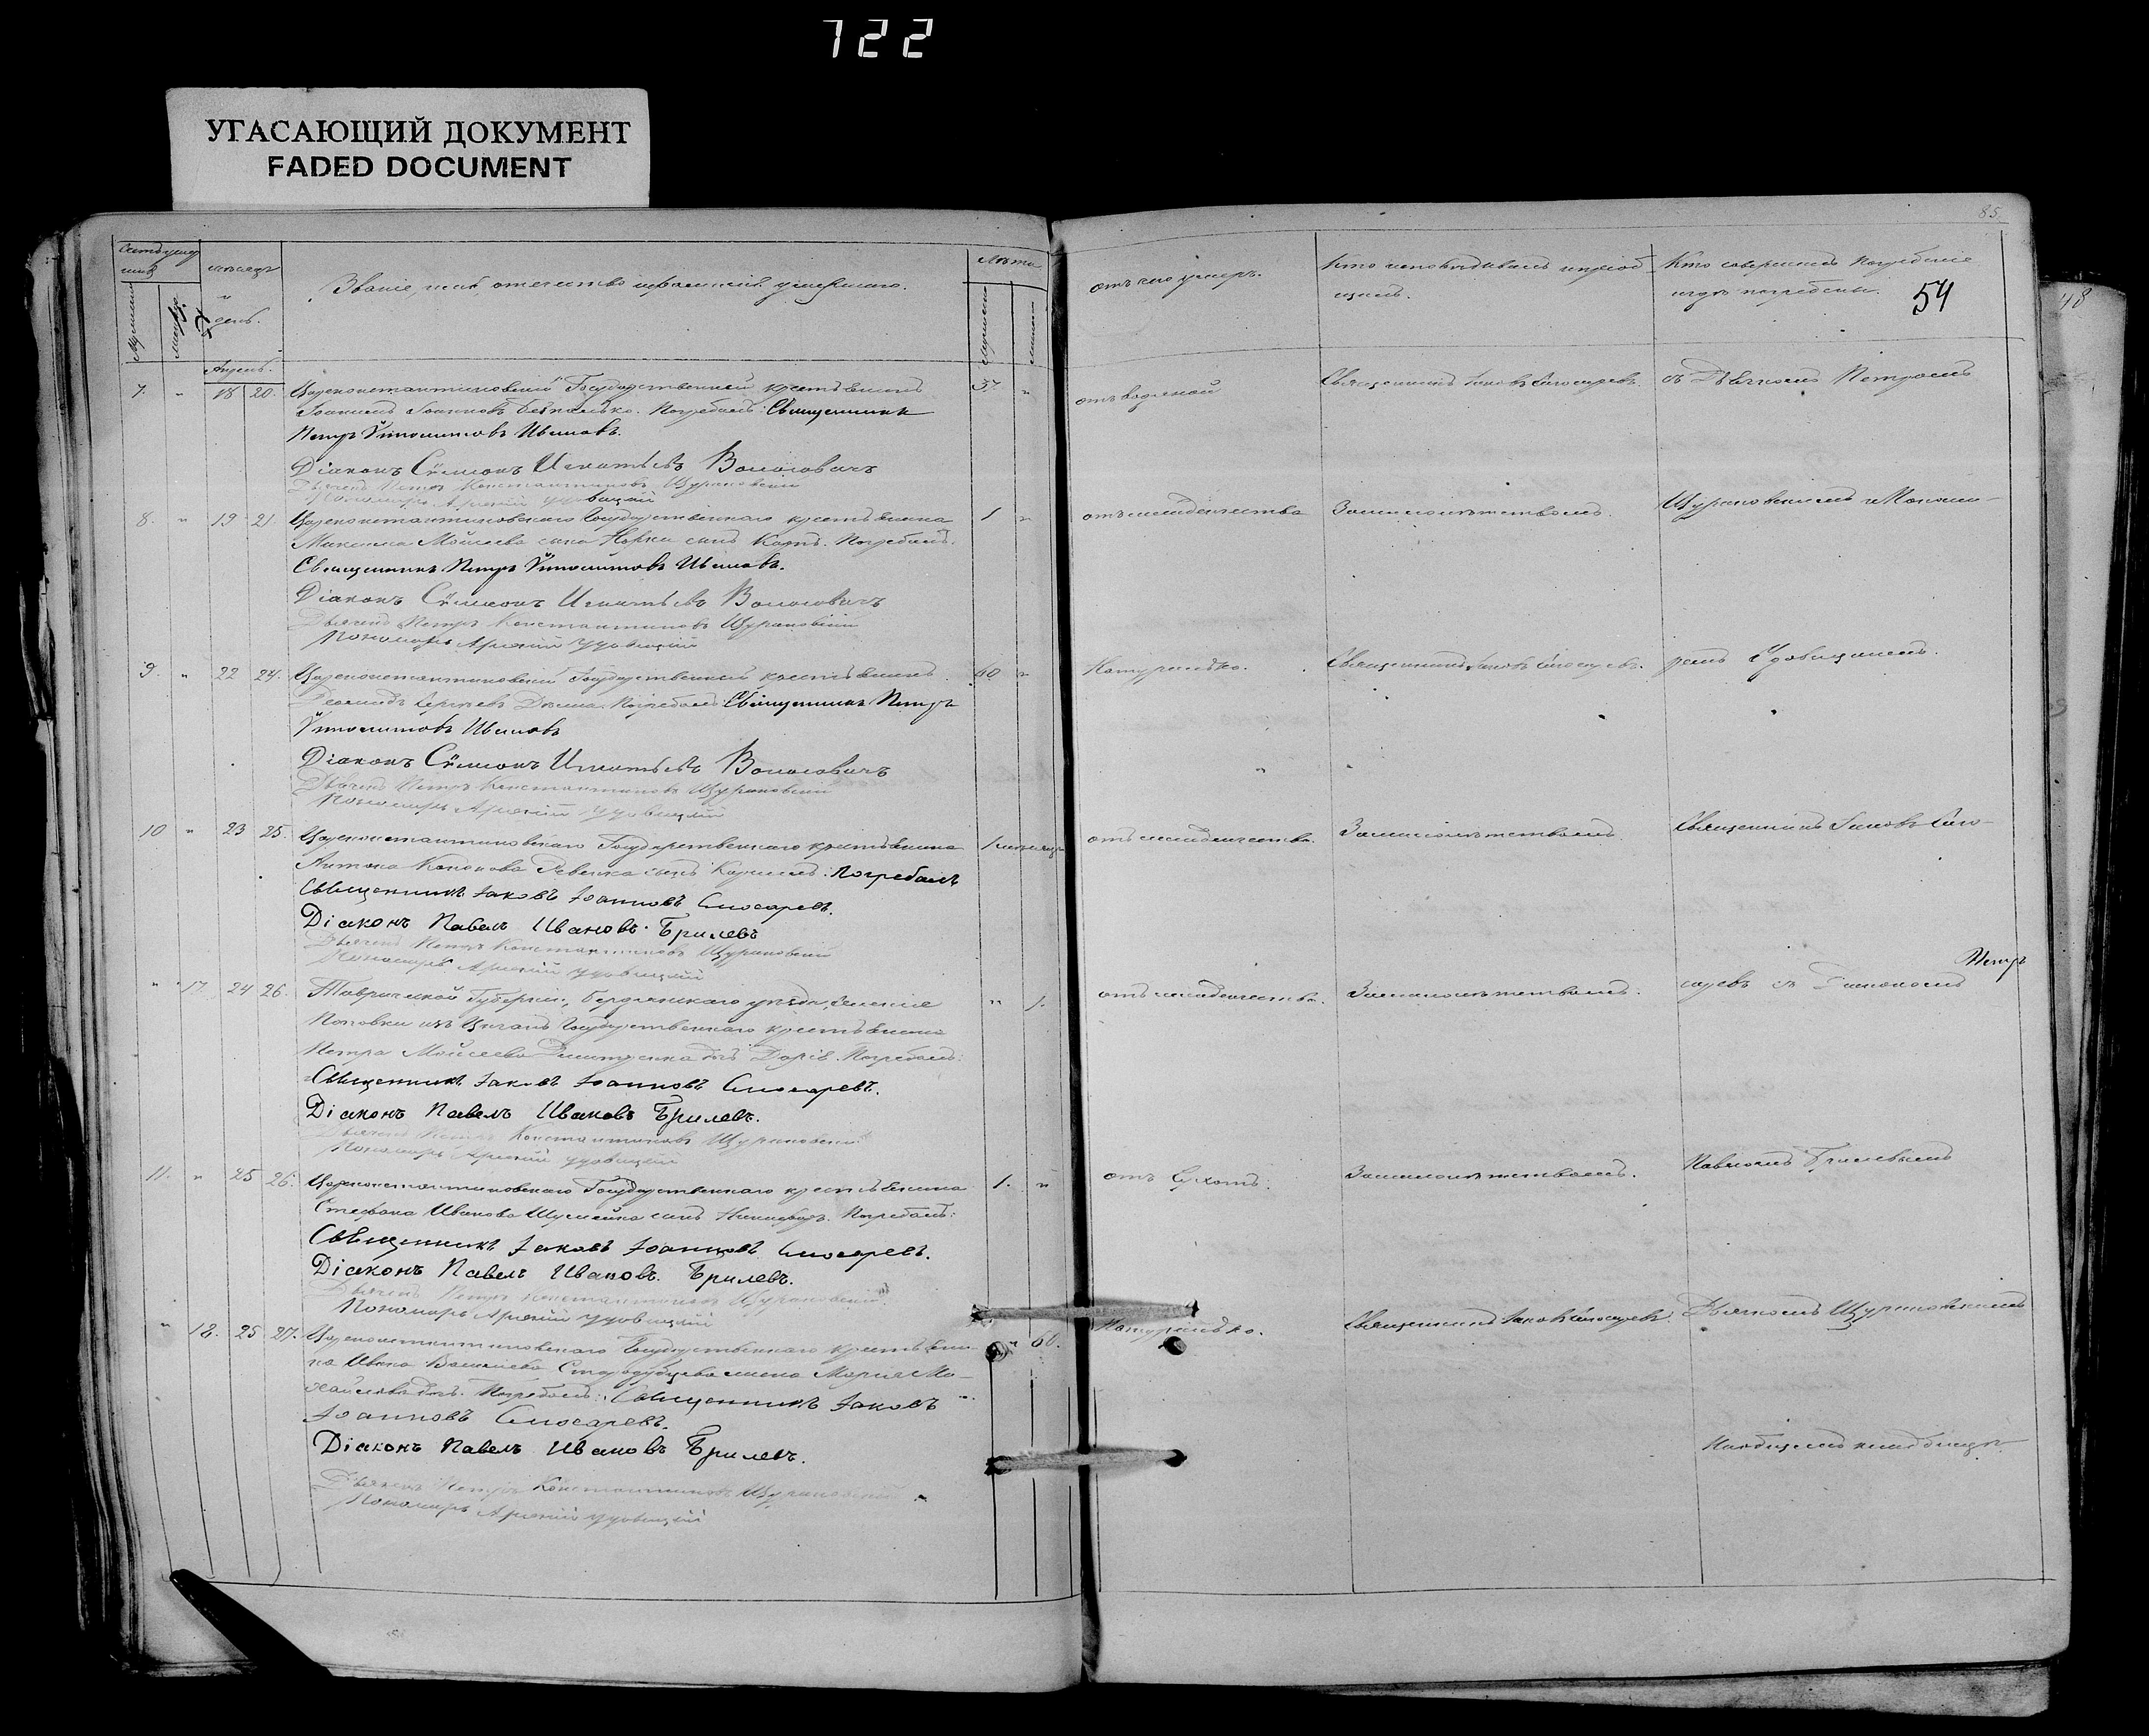 722
УГАСАЮЩИЙ ДОКУМЕНТ
FADED DOCUMENT
85.
мѣсяцъ и день.
Званіе, имя, отечество и фамилія умершаго.
Лѣта
отъ чего умеръ.
Кто исповѣдывалъ и пріобщалъ.
Кто совершилъ погребеніе и гдѣ погребены.
54
48
Апрель.
7. " 18 20. Цареконстантиновскій Государственный крестьянинъ 57 "
Іоаннъ Іоанновъ Погребалъ: Священникъ
Петръ Ѵпполитовъ Ивановъ.
Діаконъ Сѵмеонъ Игнатьевъ Волосовичъ
Дьячекъ Петръ Константиновъ Щурановскій
Пономарь Арсеній Удовицкій
отъ водяной
Священникъ Іаковъ Слюсаревъ.
съ Дьячкомъ Петромъ
8. " 19 21. Цареконстантиновскаго Государственнаго крестьянина 1 "
Моисеева сына Норки сынъ Погребалъ.
Священникъ Петръ Ѵпполитовъ Ивановъ.
Діаконъ Сѵмеонъ Игнатьевъ Волосовичъ
Дьячекъ Петръ Константиновъ Щурановскій
Пономарь Арсеній Удовицкій
отъ младенчества
За малолѣтствомъ.
Щурановскимъ и Понома-
9. " 22 24. Цареконстантиновскій Государственный крестьянинъ 60 "
Сергѣевъ Погребалъ Священникъ Петръ
Ѵпполитовъ Ивановъ
Діаконъ Сѵмеонъ Игнатьевъ Волосовичъ
Дьячекъ Петръ Константиновъ Щурановскій
Пономарь Арсеній Удовицкій
Натурально.
Священникъ Іаковъ Слюсаревъ.
ремъ Удовицкимъ.
10 " 23 25. Цареконстантиновскаго Государственнаго крестьянина 1 мѣсяцъ
Антона Кононова Ревенка сынъ Кириллъ: Погребалъ
Священникъ Іаковъ Іоанновъ Слюсаревъ.
Діаконъ Павелъ Ивановъ Брилевъ
Дьячекъ Петръ Константиновъ Щурановскій
Пономарь Арсеній Удовицкій
отъ младенчества.
За малолѣтствомъ
Священникъ Іаковъ Слю-
" 17. 24 26. Таврической Губерніи, Бердянскаго уѣзда, селенія " 1.
Поповки изъ Цыганъ Государственнаго крестьянина
Петра Моисеева Дмитренка дочь Дарія. Погребалъ:
Священникъ Іаковъ Іоанновъ Слюсаревъ.
Діаконъ Павелъ Ивановъ Брилевъ.
Дьячекъ Петръ Константиновъ Щурановскій
Пономарь Арсеній Удовицкій
отъ младенчества.
За малолѣтствомъ.
Петръ
саревъ съ Діакономъ
11. " 25 26. Цареконстантиновскаго Государственнаго крестьянина 1. "
Стефана Иванова Шумейка сынъ Никифоръ. Погребалъ:
Священникъ Іаковъ Іоанновъ Слюсаревъ.
Діаконъ Павелъ Ивановъ. Брилевъ.
Дьячекъ Петръ Константиновъ Щурановскій
Пономарь Арсеній Удовицкій
отъ Сухотъ.
За малолѣтствомъ.
Павломъ Брилевымъ
" 18. 25 27. Цареконстантиновскаго Государственнаго крестьяни- " 60.
на Ивана Васильева Стародубцева жена Марія Ми-
хайловa дочь. Погребалъ: Священникъ Іаковъ
Іоанновъ Слюсаревъ.
Діаконъ Павелъ Ивановъ Брилевъ.
Дьячекъ Петръ Константиновъ Щурановскій
Пономарь Арсеній Удовицкій
Натурально.
Священникъ Іаковъ Слюсаревъ.
Дьячкомъ Щурановскимъ
На общемъ кладбищѣ.